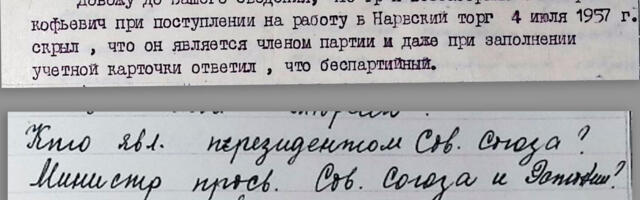 довожу до вашего сведения, что гр-н
кофьевич при поступлении на работу в Нарвский торг 4 июля 1957 г.
скрыл , что он является членом партии и даже при заполнении
учетной карточки ответил , что беспартийный.
Кто явл. перезидентом Сов. Союза?
Министр просв. Сов. Союза и Эстонии?